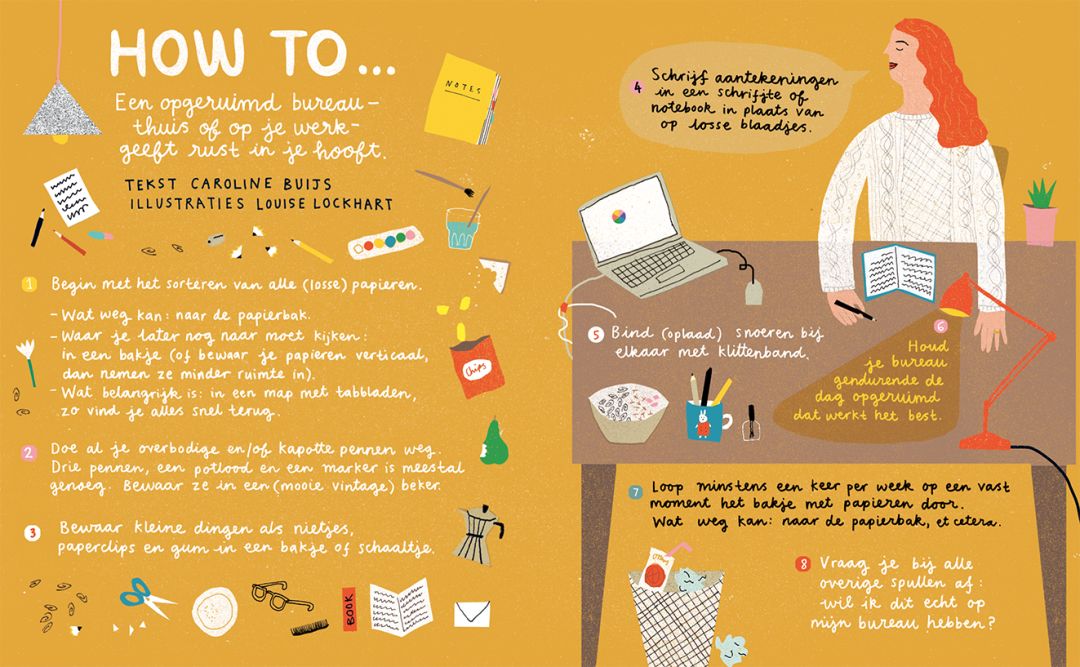 HOW TO...
Een opgeruimd bureau-
thuis of op je werk-
geeft rust in je hooft.
TEKST CAROLINE BUIJS
ILLUSTRATIES LOUISE LOCKHART
1 Begin met het sorteren van alle (losse) papieren.
- Wat weg kan: naar de papierbak.
- Waar je later nog naar moet kijken:
in een bakje (of bewaar je papieren verticaal,
dan nemen ze minder ruimte in).
- Wat belangrijk is: in een map met tabbladen,
zo vind je alles snel terug.
2 Doe al je overbodige en/of kapotte pennen weg.
Drie pennen, een potlood en een marker is meestal
genoeg. Bewaar ze in een (mooie vintage) beker.
3 Bewaar kleine dingen als nietjes,
paperclips en gum in een bakje of schaaltje.
NOTES
Chips
BOOK
4 Schrijf aantekeningen
in een schrifjte of
notebook in plaats van
op losse blaadjes.
5 Bind (oplaad) snoeren bij
elkaar met klittenband.
6
Houd
je bureau
gendurende de
dag opgeruimd
dat werkt het best.
7 Loop minstens een keer per week op een vast
moment het bakje met papieren door.
Wat weg kan: naar de papierbak, et cetera.
8 Vraag je bij alle
overige spullen af:
wil ik dit echt op
mijn bureau hebben?